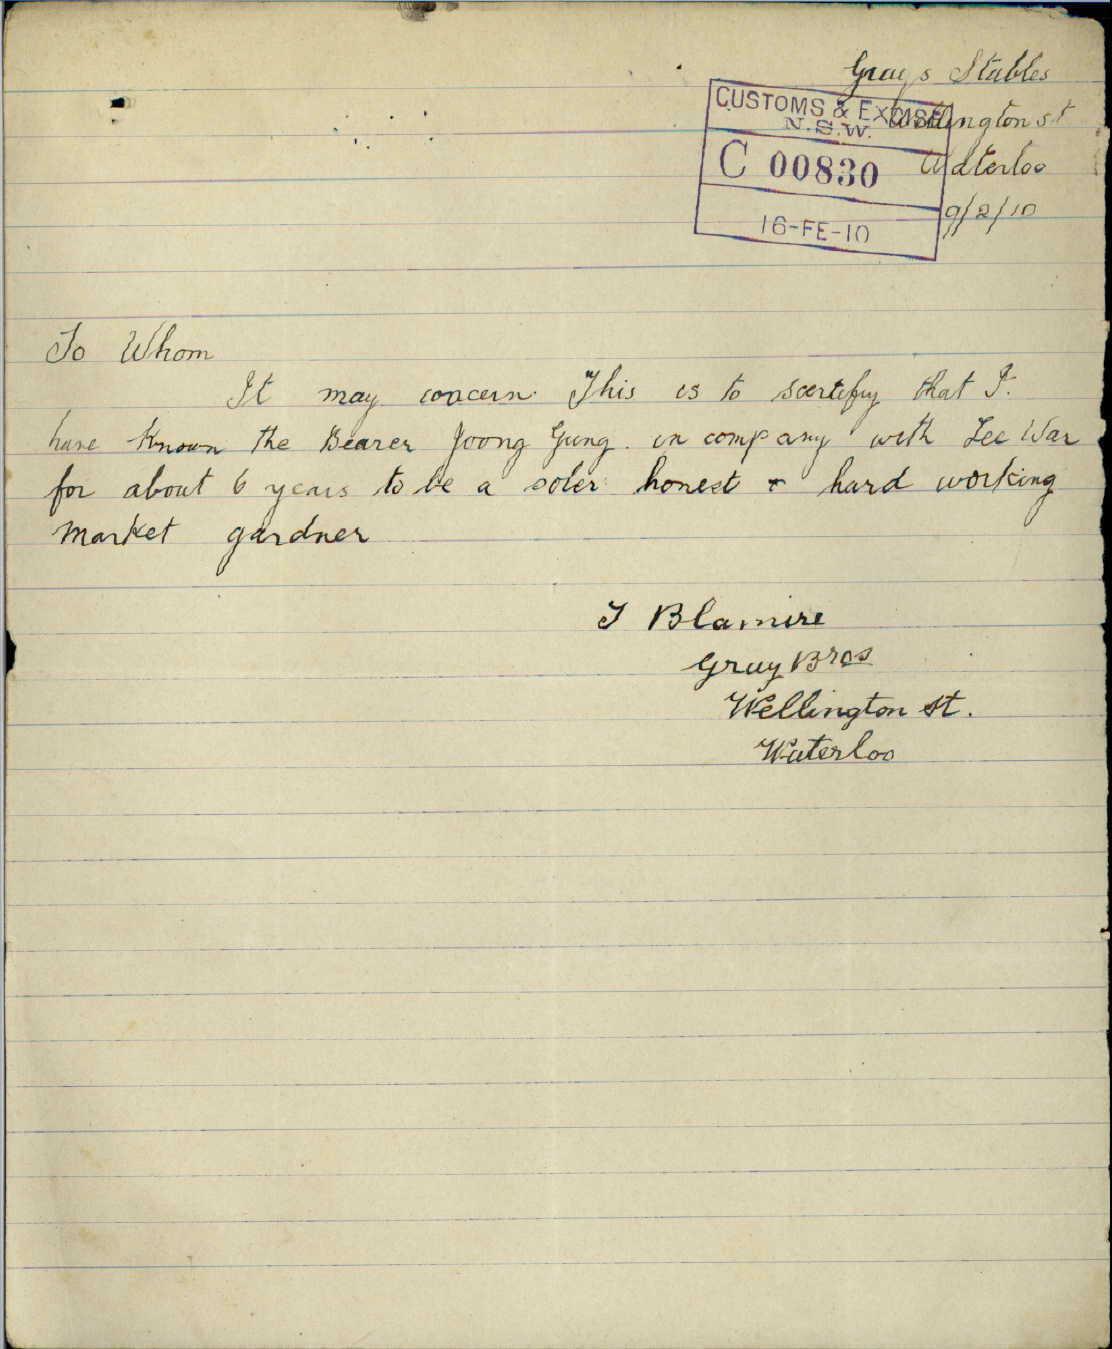 Grays Stables
Wellington st
Waterloo
9/2/10
CUSTOMS & EXCISE
N.S.W.
C 00830
16-FE-10
To Whom
It may concern. This is to scertify that I.
have Known the Bearer Joong Gung. in company with Lee War
for about 6 years to be a sober honest & hard working
Market gardner
T Blamire
Gray Bros
Wellington St.
Waterloo